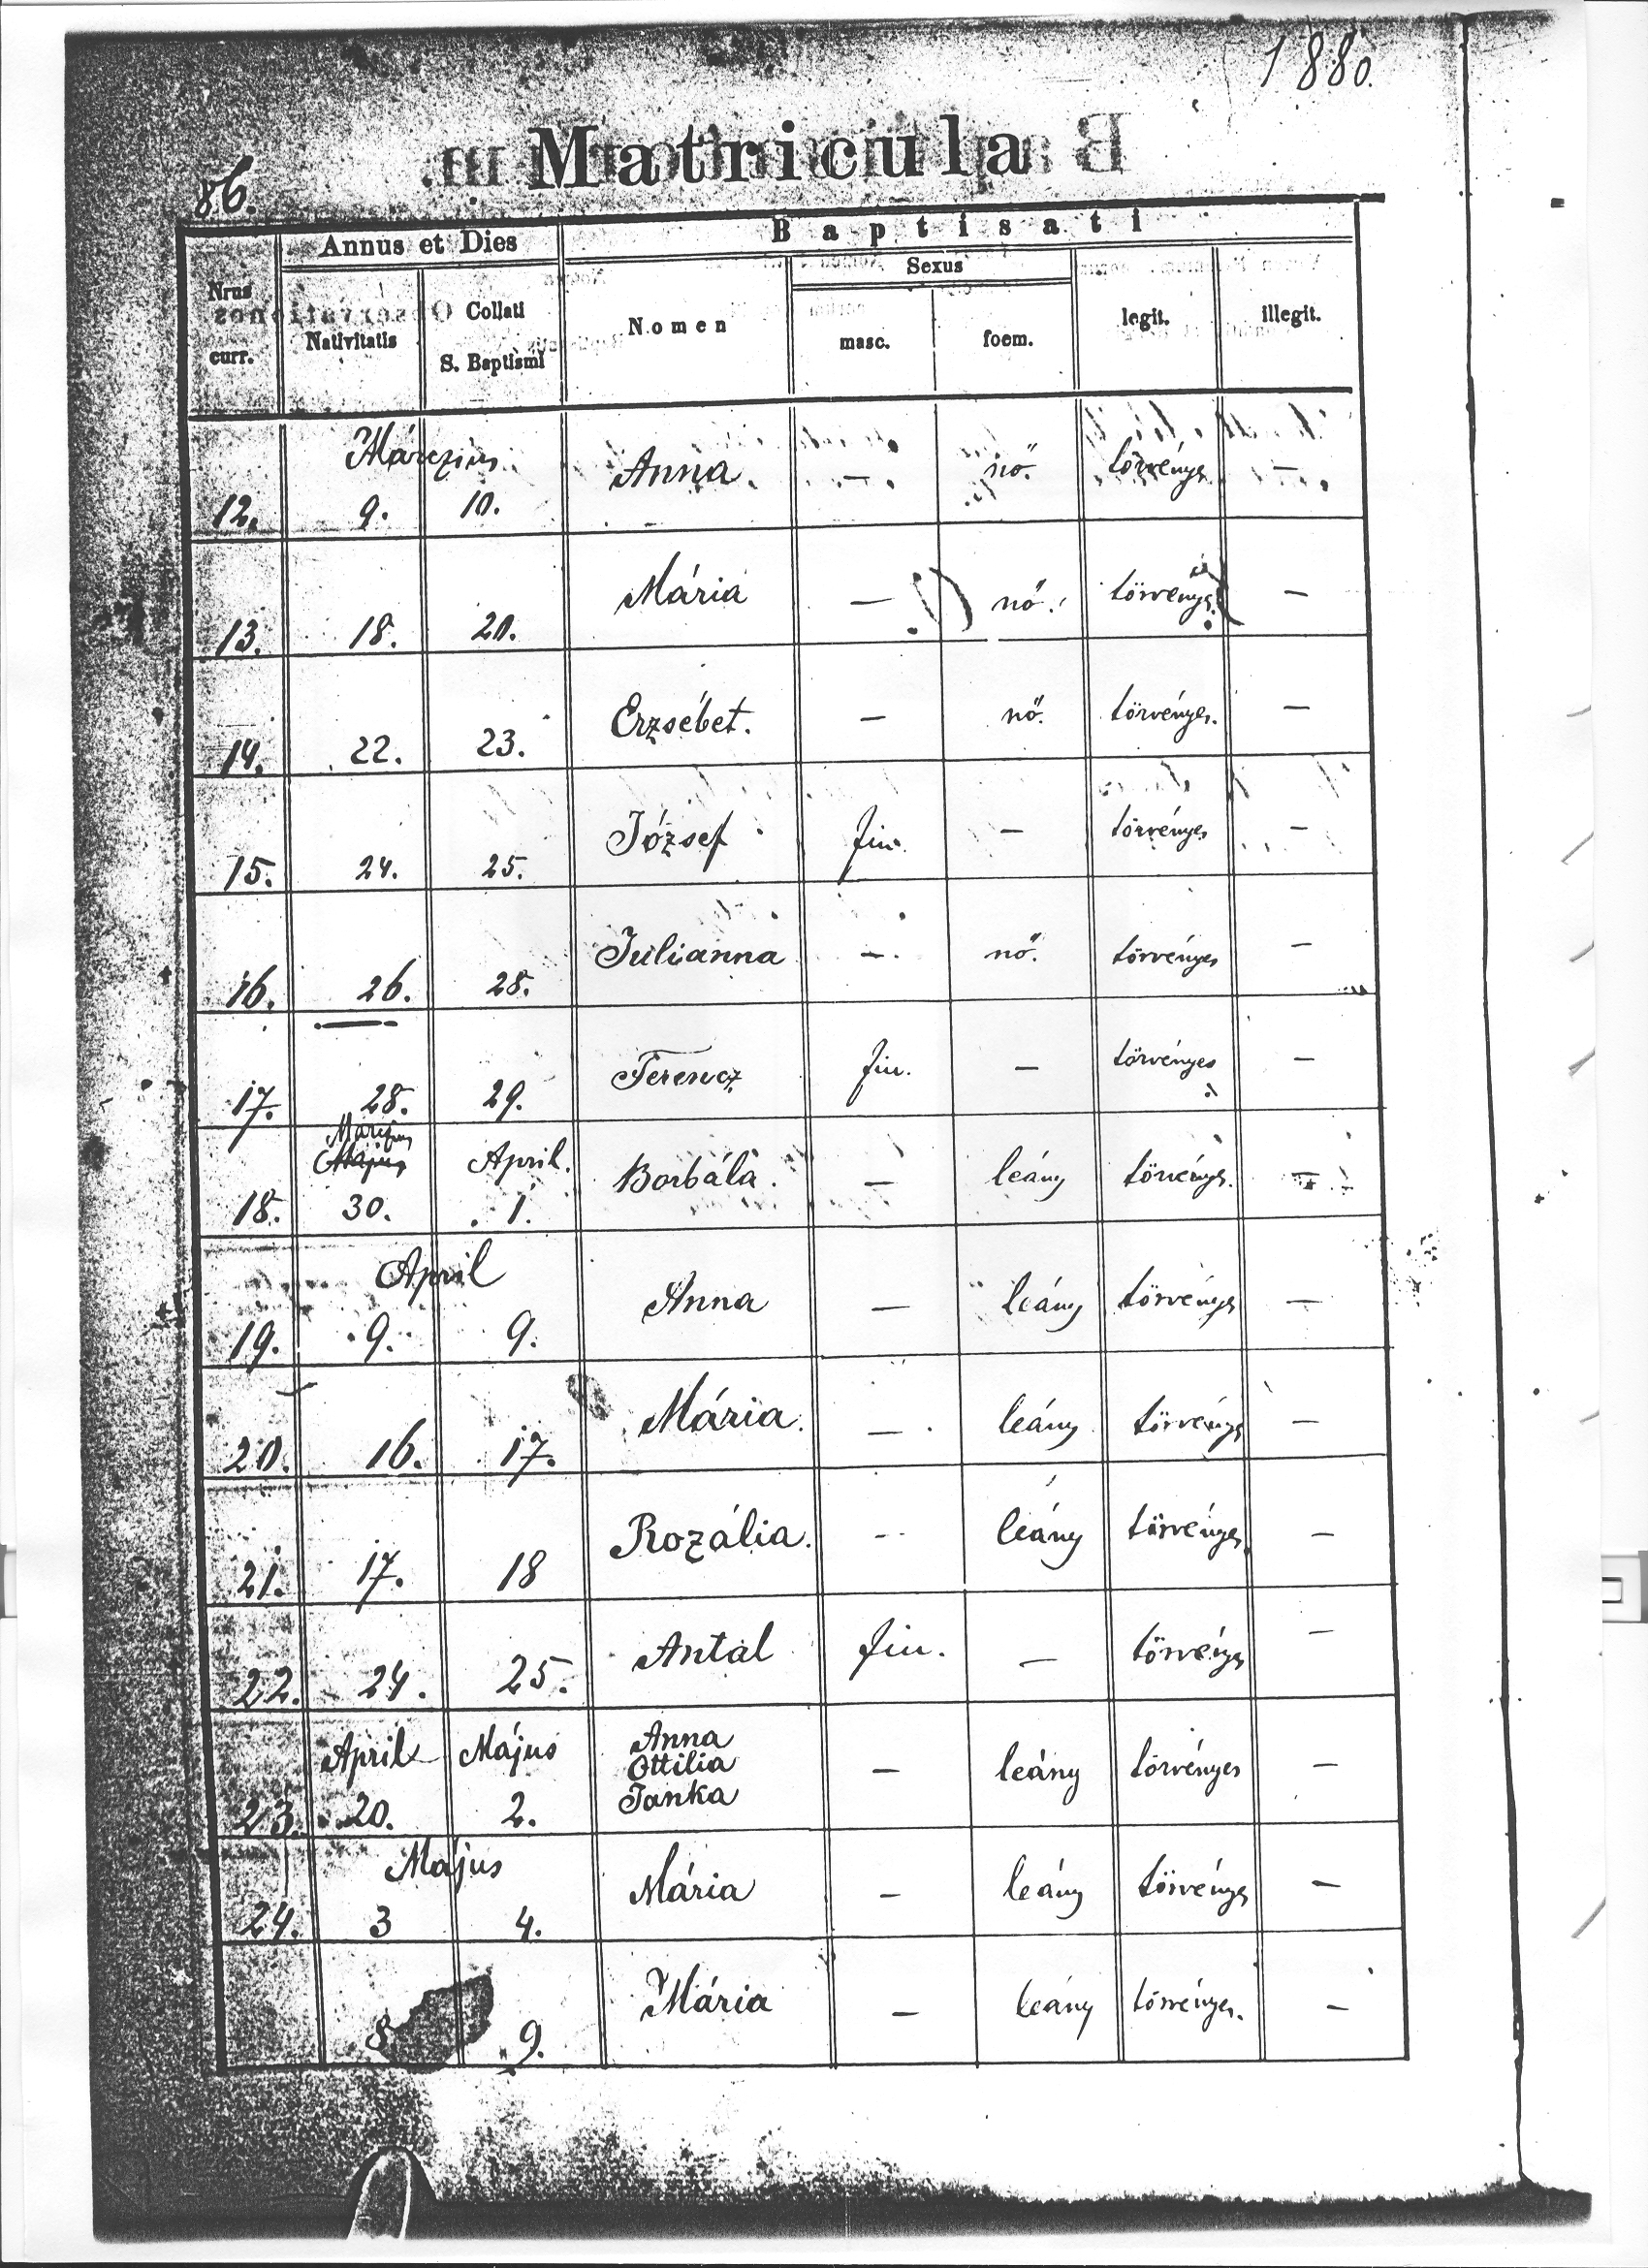 1880.
Matricula
86.
Annus et Dies
Baptisati
Nrus curr.
Nativitatis
Collati S. Baptismi
Nomen
Sexus
masc.
foem.
legit.
illegit.
Márczius
12. 9. 10. Anna. — nő. törvényes —
13. 18. 20. Mária — nő. törvényes. —
14. 22. 23. Erzsébet. — nő. törvényes. —
15. 24. 25. József fiu — törvényes —
16. 26. 28. Julianna — nő. törvényes —
17. 28. 29. Ferencz fiu. — törvényes —
Márczius
Május April.
18. 30. 1. Borbála. — leány törvényes. —
April
19. 9. 9. Anna — leány törvényes —
20. 16. 17. Mária. — leány törvényes —
21. 17. 18 Rozália. — leány törvényes —
22. 24. 25. Antal fiu. — törvényes —
April Május
Anna
Ottilia
Janka
23. 20. 2. — leány törvényes —
Május
24. 3 4. Mária — leány törvényes —
8 9. Mária — leány törvényes. —